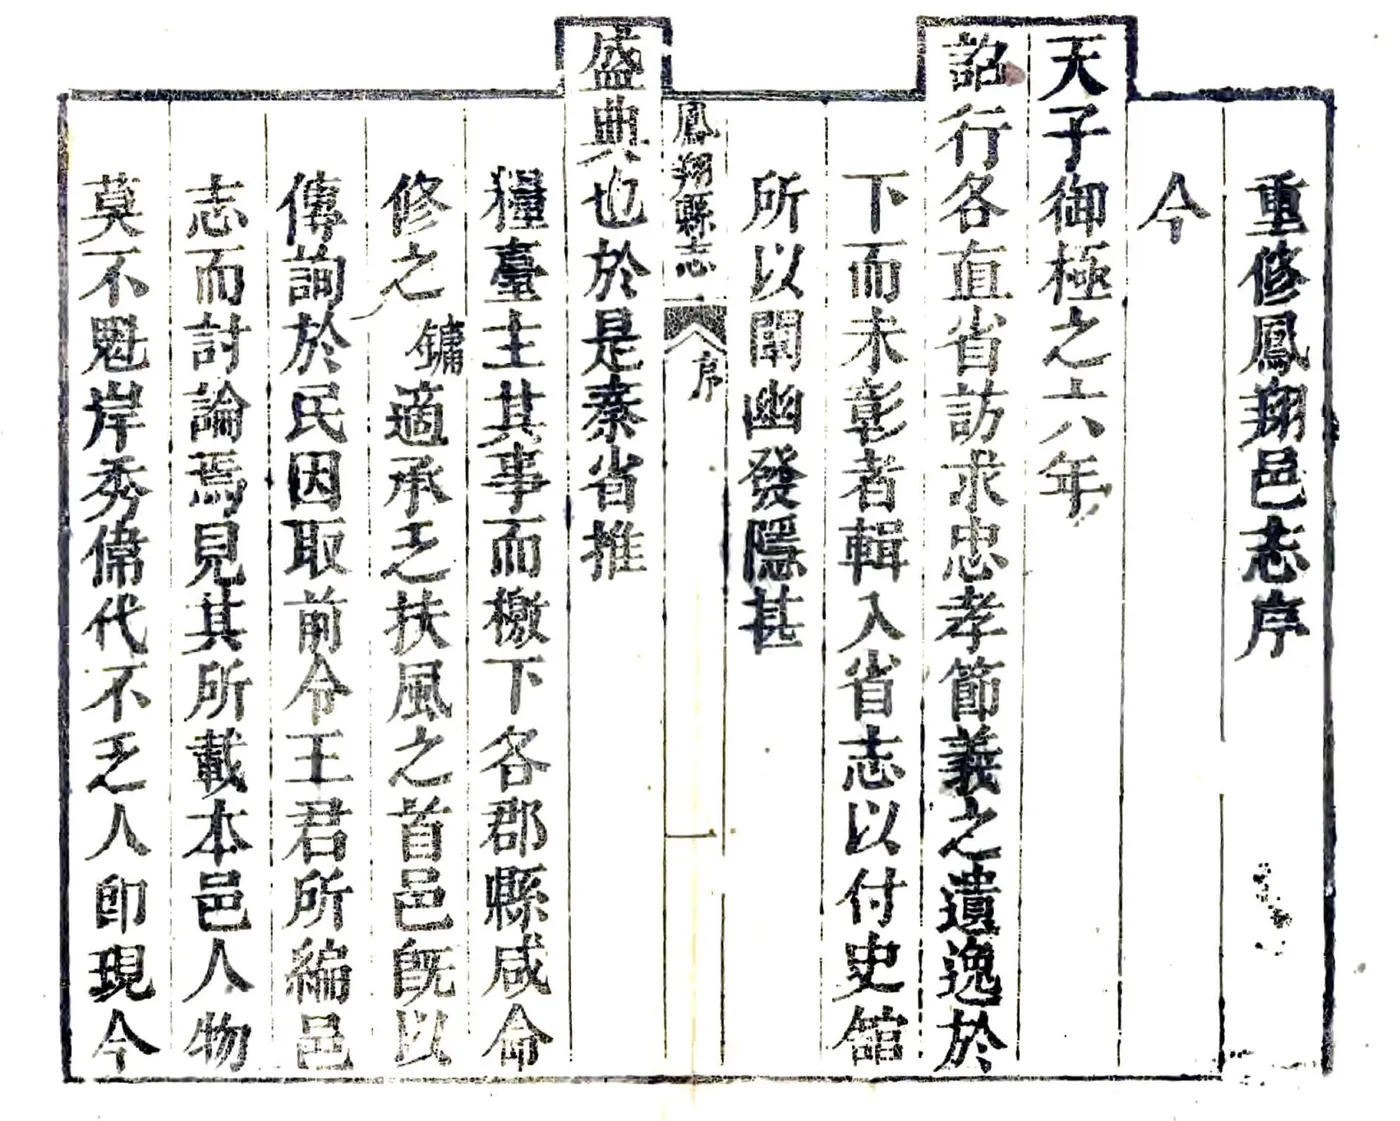 重修鳳翔邑志序
今
天子御極之六年
詔行各直省訪求忠孝節義之遺逸於
下而未彰者輯入省志以付史舘
所以闡幽發隱甚
鳳翔縣志
序
盛典也於是秦省推
糧臺主其事而檄下各郡縣咸命
修之鏞適承乏扶風之首邑旣以
傳詢於民因取前令王君所編邑
志而討論焉見其所載本邑人物
莫不魁岸秀偉代不乏人卽現今